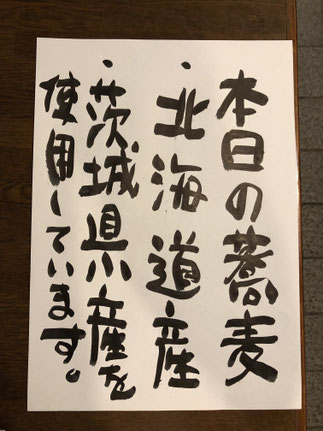 本日の蕎麦
・北海道産
・茨城県産を
使用しています。